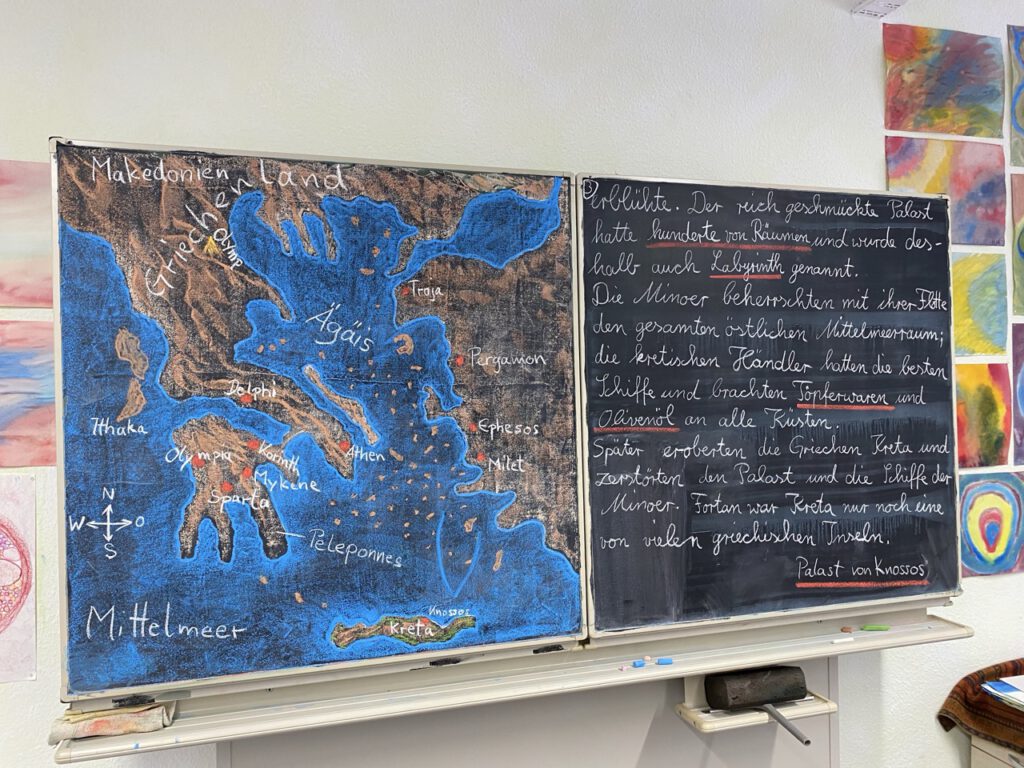 Makedonien
Griechenland
Olymp
Troja
Ägäis
Pergamon
Delphi
Ithaka
Ephesos
Olympia
Korinth
Athen
Milet
Mykene
Sparta
N
W O
S
Peleponnes
Mittelmeer
Knossos
Kreta
③
erblühte. Der reich geschmückte Palast
hatte hunderte von Räumen und wurde des-
halb auch Labyrinth genannt.
Die Minoer beherrschten mit ihrer Flotte
den gesamten östlichen Mittelmeerraum;
die kretischen Händler hatten die besten
Schiffe und brachten Töpferwaren und
Olivenöl an alle Küsten.
Später eroberten die Griechen Kreta und
zerstörten den Palast und die Schiffe der
Minoer. Fortan war Kreta nur noch eine
von vielen griechischen Inseln.
Palast von Knossos